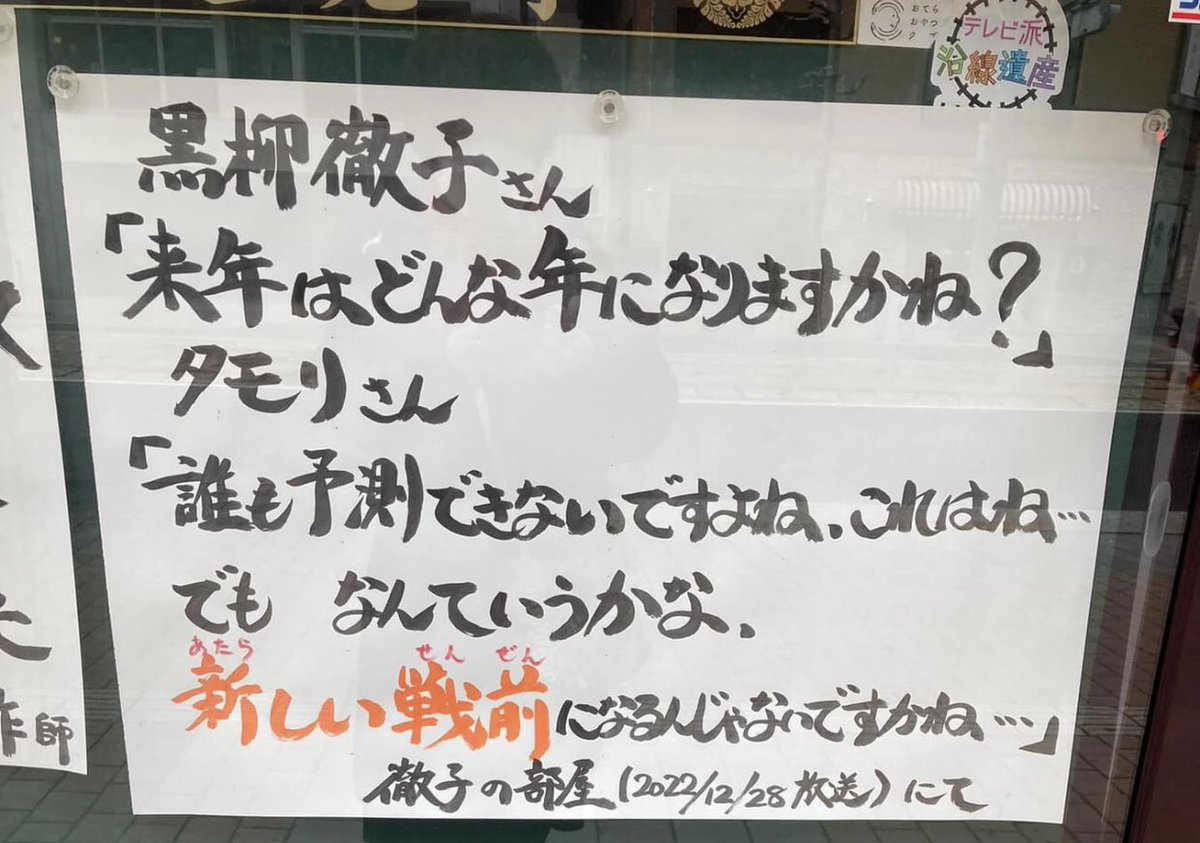 おてら
おやつ
テレビ派
沿線遺産
黒柳徹子さん
「来年はどんな年になりますかね?」
タモリさん
「誰も予測できないですよね、これはね…
でも なんていうかな、
あたら せんぜん
新しい戦前になるんじゃないですかね、…」
徹子の部屋(2022/12/28放送)にて
師